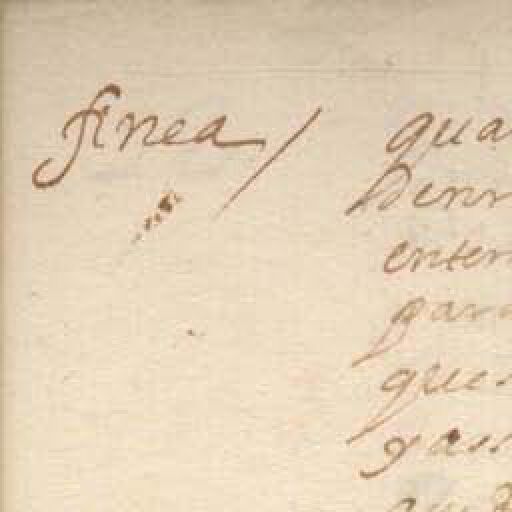 finea / qua
Denr
enten
para
ques
y ass